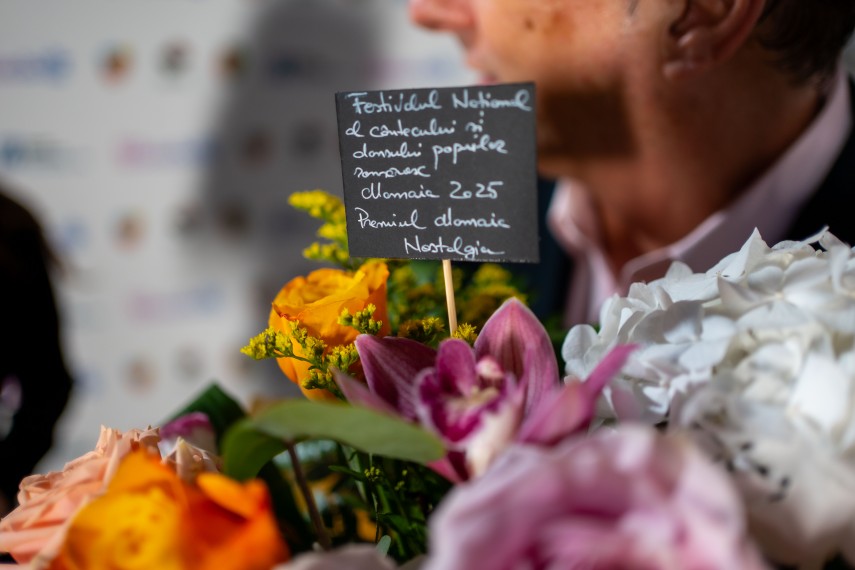 Festivalul National
al cântecului si
dansului popular
românesc
Mamaia 2025
Premiul Mamaia
Nostalgia